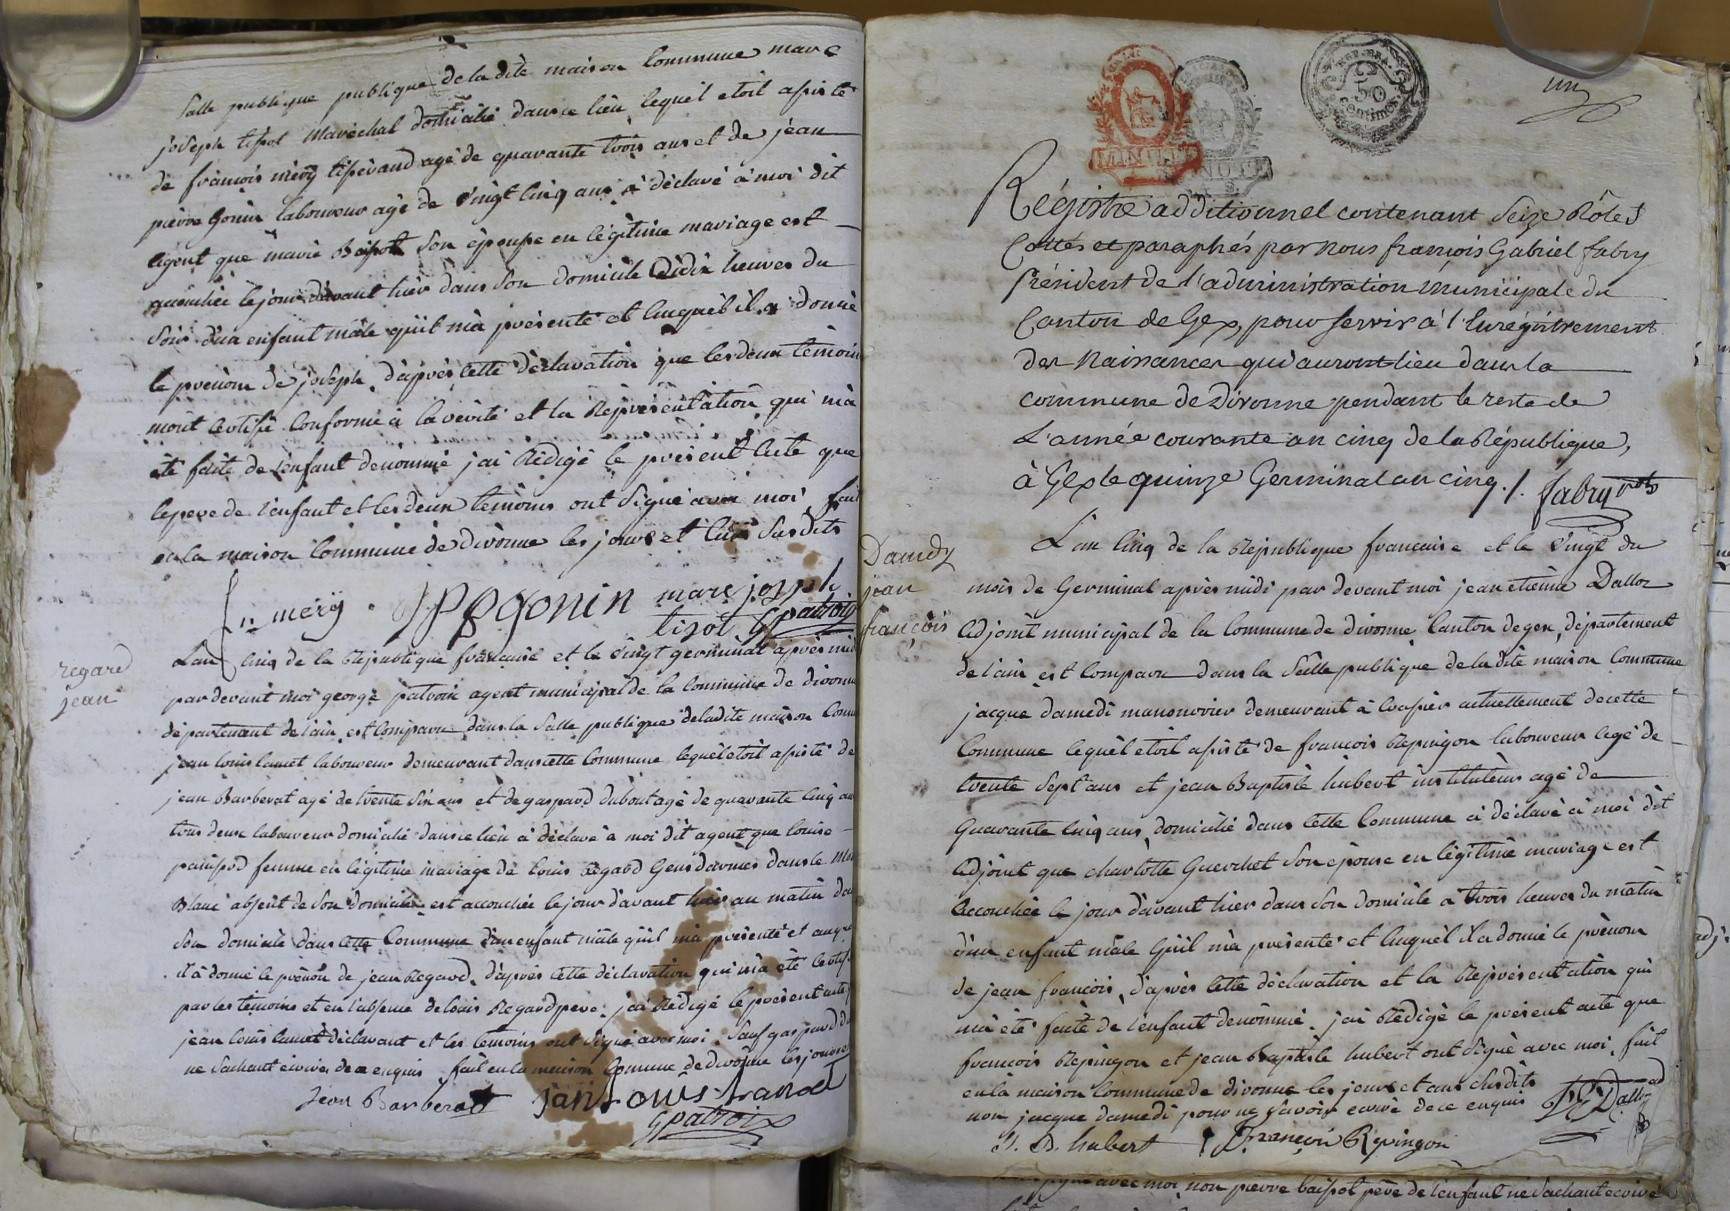 Salle publique publique de la dite maison Commune marc
joseph tisot maréchal domicilié dans ce lieu lequel etoit assisté
de francois mery tisserand agé de quarante trois ans et de jean
pierre Gonin laboureur agé de vingt cinq ans à déclaré à moi dit
agent que marie Baipot son épouse en légitime mariage est
accouchée le jour davant hier dans son domicile à dix heures du
soir d'un enfant mâle qu'il m'à présenté et auquel il a donné
le prénom de joseph, d'après cette déclaration que les deux témoins
m'ont certifié conforme à la vérité et la Représentation qui m'à
été faite de l'enfant denommé j'ai Rédigé le présent acte que
le pere de l'enfant et les deux temoins ont signé avec moi fait
en la maison Commune de Divonne les jours et an susdits
f. mery JPGonin marc joseph
tisot GPatroix
regard
jean
L'an cinq de la Republique francaise et le vingt germinal après midi
par devant moi george patroix agent municipal de la Commune de divonne
departement de l'ain est comparu dans la salle publique de la dite maison Comm
jean louis lanet laboureur demeurant dans cette Commune lequel etoit assisté de
jean Barberat agé de trente six ans et de gaspard dubout agé de quarante cinq ans
tous deux laboureurs domicilié dans ce lieu à déclaré à moi dit agent que louise
panissod femme en légitime mariage de louis Regard Gensdarmes dans le Mon
Blanc absent de son domicile est accouchée le jour d'avant hier au matin dans
son domicile dans cette Commune d'un enfant mâle qu'il m'a présenté et auquel
il à donné le prénom de jean Regard, d'après cette déclaration qui m'a été certifié
par les témoins et en l'absence de louis Regard pere, j'ai Rédigé le présent acte
jean louis lanet déclarant et les temoins ont signé avec moi. Sauf gaspard du
ne sachant écrire de ce enquis fait en la maison Commune de divonne les jours
Jean Barberat jean Louis Lanet
GPatroix
un
50 centimes
Régistre additionnel contenant Seize Rôles
Cottés et paraphés par nous françois Gabriel fabry
Président de l'administration Municipale du
Canton de Gex, pour servir à l'Enrégistrement
des Naissances qui auront lieu dans la
commune de Divonne pendant le reste de
L'année courante an cinq de la République,
à Gex le quinze Germinal an cinq ./. fabry
Damdy
jean
françois
L'an cinq de la République francaise et le vingt du
mois de Germinal après midi par devant moi jean etienne Dalloz
adjoint municipal de la Commune de divonne, Canton de gex, département
de l'ain est Comparu dans la Salle publique de la dite maison Commune
jacque damedi manouvrier demeurant à actuellement de cette
Commune lequel etoit assisté de francois Repingon laboureur agé de
trente sept ans et jean Baptiste hubert instituteur agé de
Quarante cinq ans, domicilié dans cette Commune à déclaré à moi dit
adjoint que charlotte Guerchet son épouse en légitime mariage est
accouchée le jour d'avant hier dans son domicile à trois heures du matin
d'un enfant mâle qu'il m'à présenté et auquel il a donné le prénom
de jean francois, d'après cette déclaration et la Représentation qui
m'à été faite de l'enfant denommé, j'ai Rédigé le présent acte que
francois Repingon et jean Baptiste hubert ont signé avec moi, fait
en la maison Commune de divonne les jours et ans susdits
non jacque damedi pour ne savoir écrire de ce enquis Dalloz
J. B. hubert françois Repingon
avec moi non pierre baipot père de l'enfant ne sachant ecrire